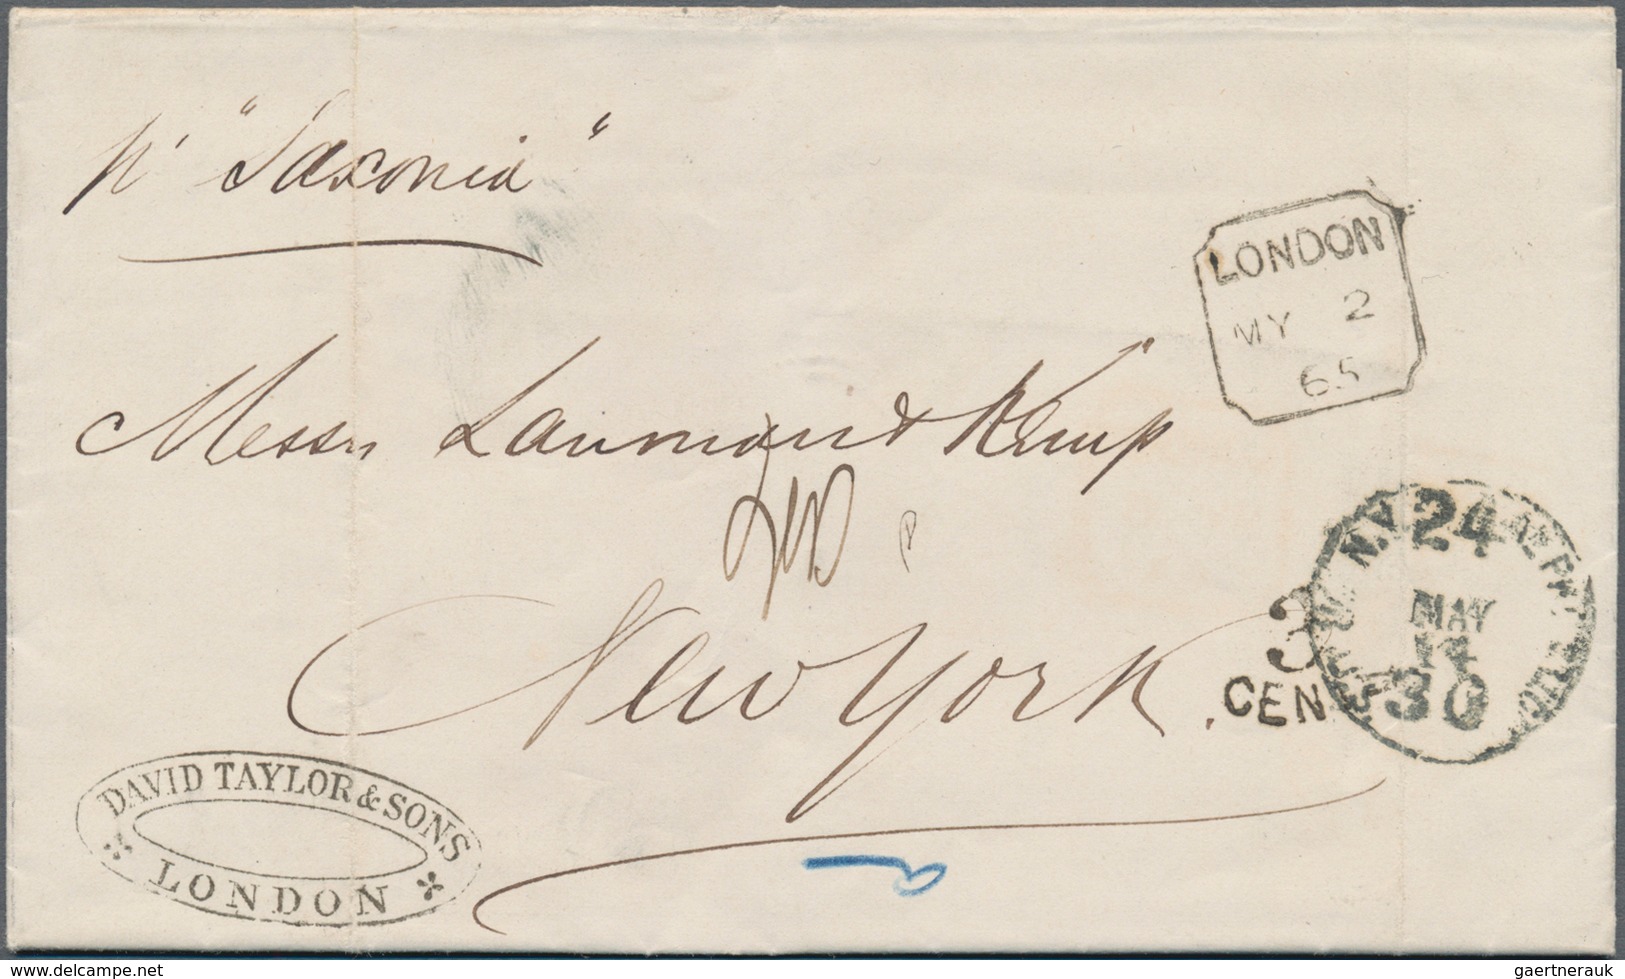 pr "Saxonia"
LONDON
MY 2
65
Messrs Lanman & Kemp
New York.
3
CEN
N.Y. AM. PKT.
24
MAY
30
DAVID TAYLOR & SONS
LONDON
www.delcampe.net
gaertnerauk